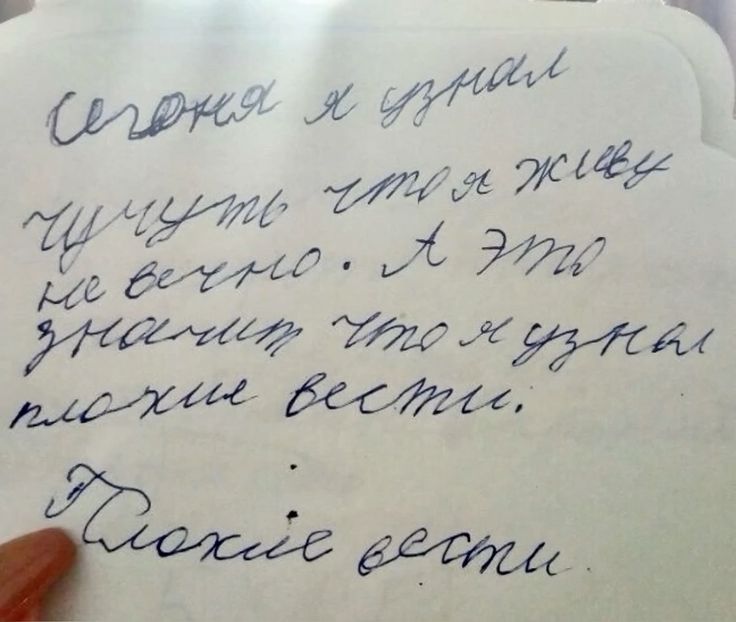 Сегоня я узнал
чучуть что я живу
не вечно. А это
значит что я узнал
плохие вести.
Плохие вести